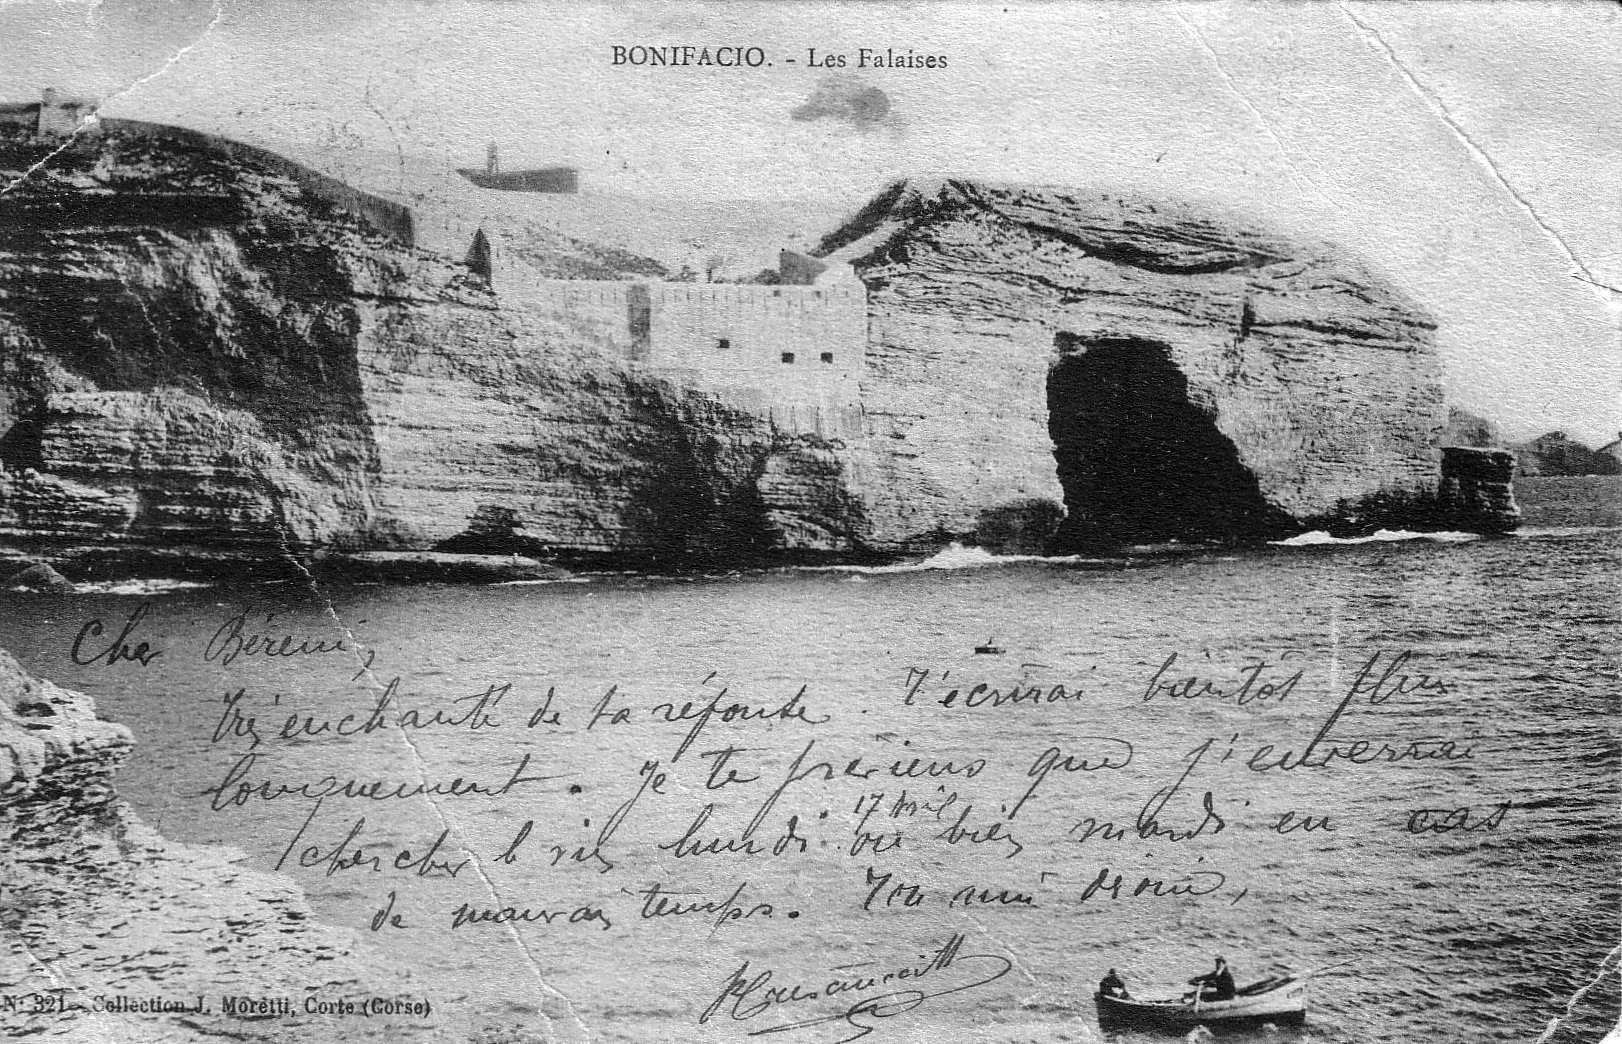 BONIFACIO. - Les Falaises
Cher
Très enchanté de ta réponse. T'écrirai bientôt plus
longuement. Je te préviens que j'enverrai
17 Avril
chercher le vin lundi ou bien mardi en cas
de mauvais temps. Ton ami
N° 321 - Collection J. Moretti, Corte (Corse)